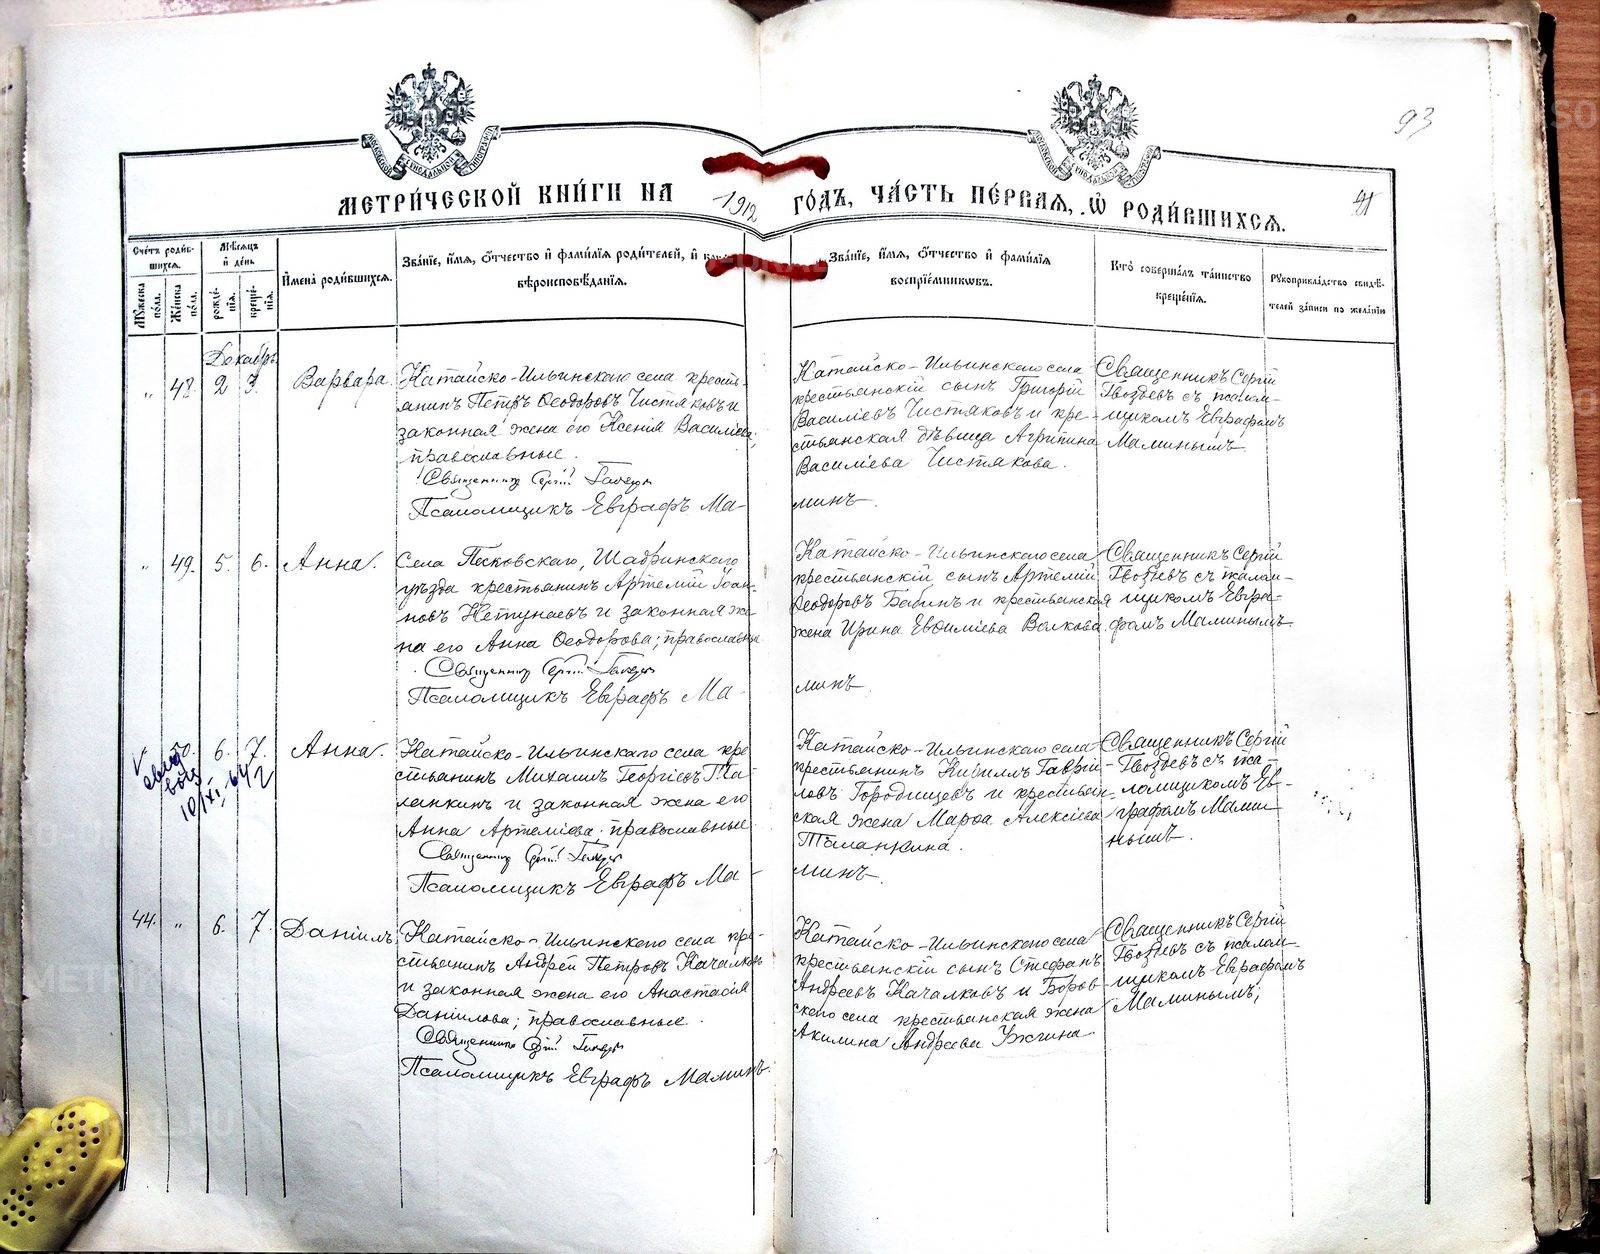 93
МЕТРИ́ЧЕСКОЙ КНИ́ГИ НА 1912 ГО́ДЪ, ЧА́СТЬ ПЕ́РВАЯ, Ѡ РОДИ́ВШИХСЯ.
Сче́тъ роди́в-
шихся.
Му́жеска по́ла.
Же́нска по́ла.
Мѣ́сяцъ и де́нь
рожде́нія.
креще́нія.
Имена̀ роди́вшихся.
Зва́ніе, и́мя, о́тчество и фами́лія роди́телей, и
вѣроисповѣ́данія.
Зва́ніе, и́мя, о́тчество и фами́лія
воспріе́мниковъ.
Кто̀ соверша́лъ та́инство
креще́нія.
Рукоприкла́дство свидѣ́-
телей за́писи по жела́нію
Декабрь
" 48. 2 3. Варвара.
Катайско-Ильинскаго села кресть-
янинъ Петръ Ѳеодоровъ Чистяковъ и
законная жена его Ксенія Василіева;
православные.
Священникъ Сергій Гвоздевъ
Псаломщикъ Евграфъ Ма-
Катайско-Ильинскаго села
крестьянскій сынъ Григорій
Василіевъ Чистяковъ и кре-
стьянская дѣвица Агрипина
Василіева Чистякова.
минъ.
Священникъ Сергій
Гвоздевъ съ псалом-
щикомъ Евграфомъ
Маминымъ
" 49. 5. 6. Анна.
Села Песковскаго, Шадринскаго
уѣзда крестьянинъ Артемій Іоан-
новъ и законная же-
на его Анна Ѳеодорова; православны
Священникъ Сергій Гвоздевъ
Псаломщикъ Евграфъ Ма-
Катайско-Ильинскаго села
крестьянскій сынъ Артемій
Ѳеодоровъ Бабинъ и крестьянская
жена Ирина Евдиміева Волкова
минъ.
Священникъ Сергій
Гвоздевъ съ псалом-
щикомъ Евгра-
фомъ Маминымъ
6. 7. Анна.
10/XI
Катайско-Ильинскаго села кре
стьянинъ Михаилъ Георгіевъ Та-
ланкинъ и законная жена его
Анна Артеміева; православные.
Священникъ Сергій Гвоздевъ
Псаломщикъ Евграфъ Ма-
Катайско-Ильинскаго села
крестьянинъ Кириллъ Гаврі-
ловъ Городищевъ и крестьян-
ская жена Марѳа Алексіева
Таланкина.
минъ.
Священникъ Сергій
Гвоздевъ съ пса-
ломщикомъ Ев-
графомъ Мами
нымъ.
44. " 6. 7. Даніилъ
Катайско-Ильинскаго села кре-
стьянинъ Андрей Петровъ Качалковъ
и законная жена его Анастасія
Даніилова; православные.
Священникъ Сергій Гвоздевъ
Псаломщикъ Евграфъ Маминъ.
Катайско-Ильинскаго села
крестьянскій сынъ Стефанъ
Андреевъ Качалковъ и Боров-
скаго села крестьянская жена
Акилина Андреева Ужгина
Священникъ Сергій
Гвоздевъ съ псалом-
щикомъ Евграфомъ
Маминымъ;